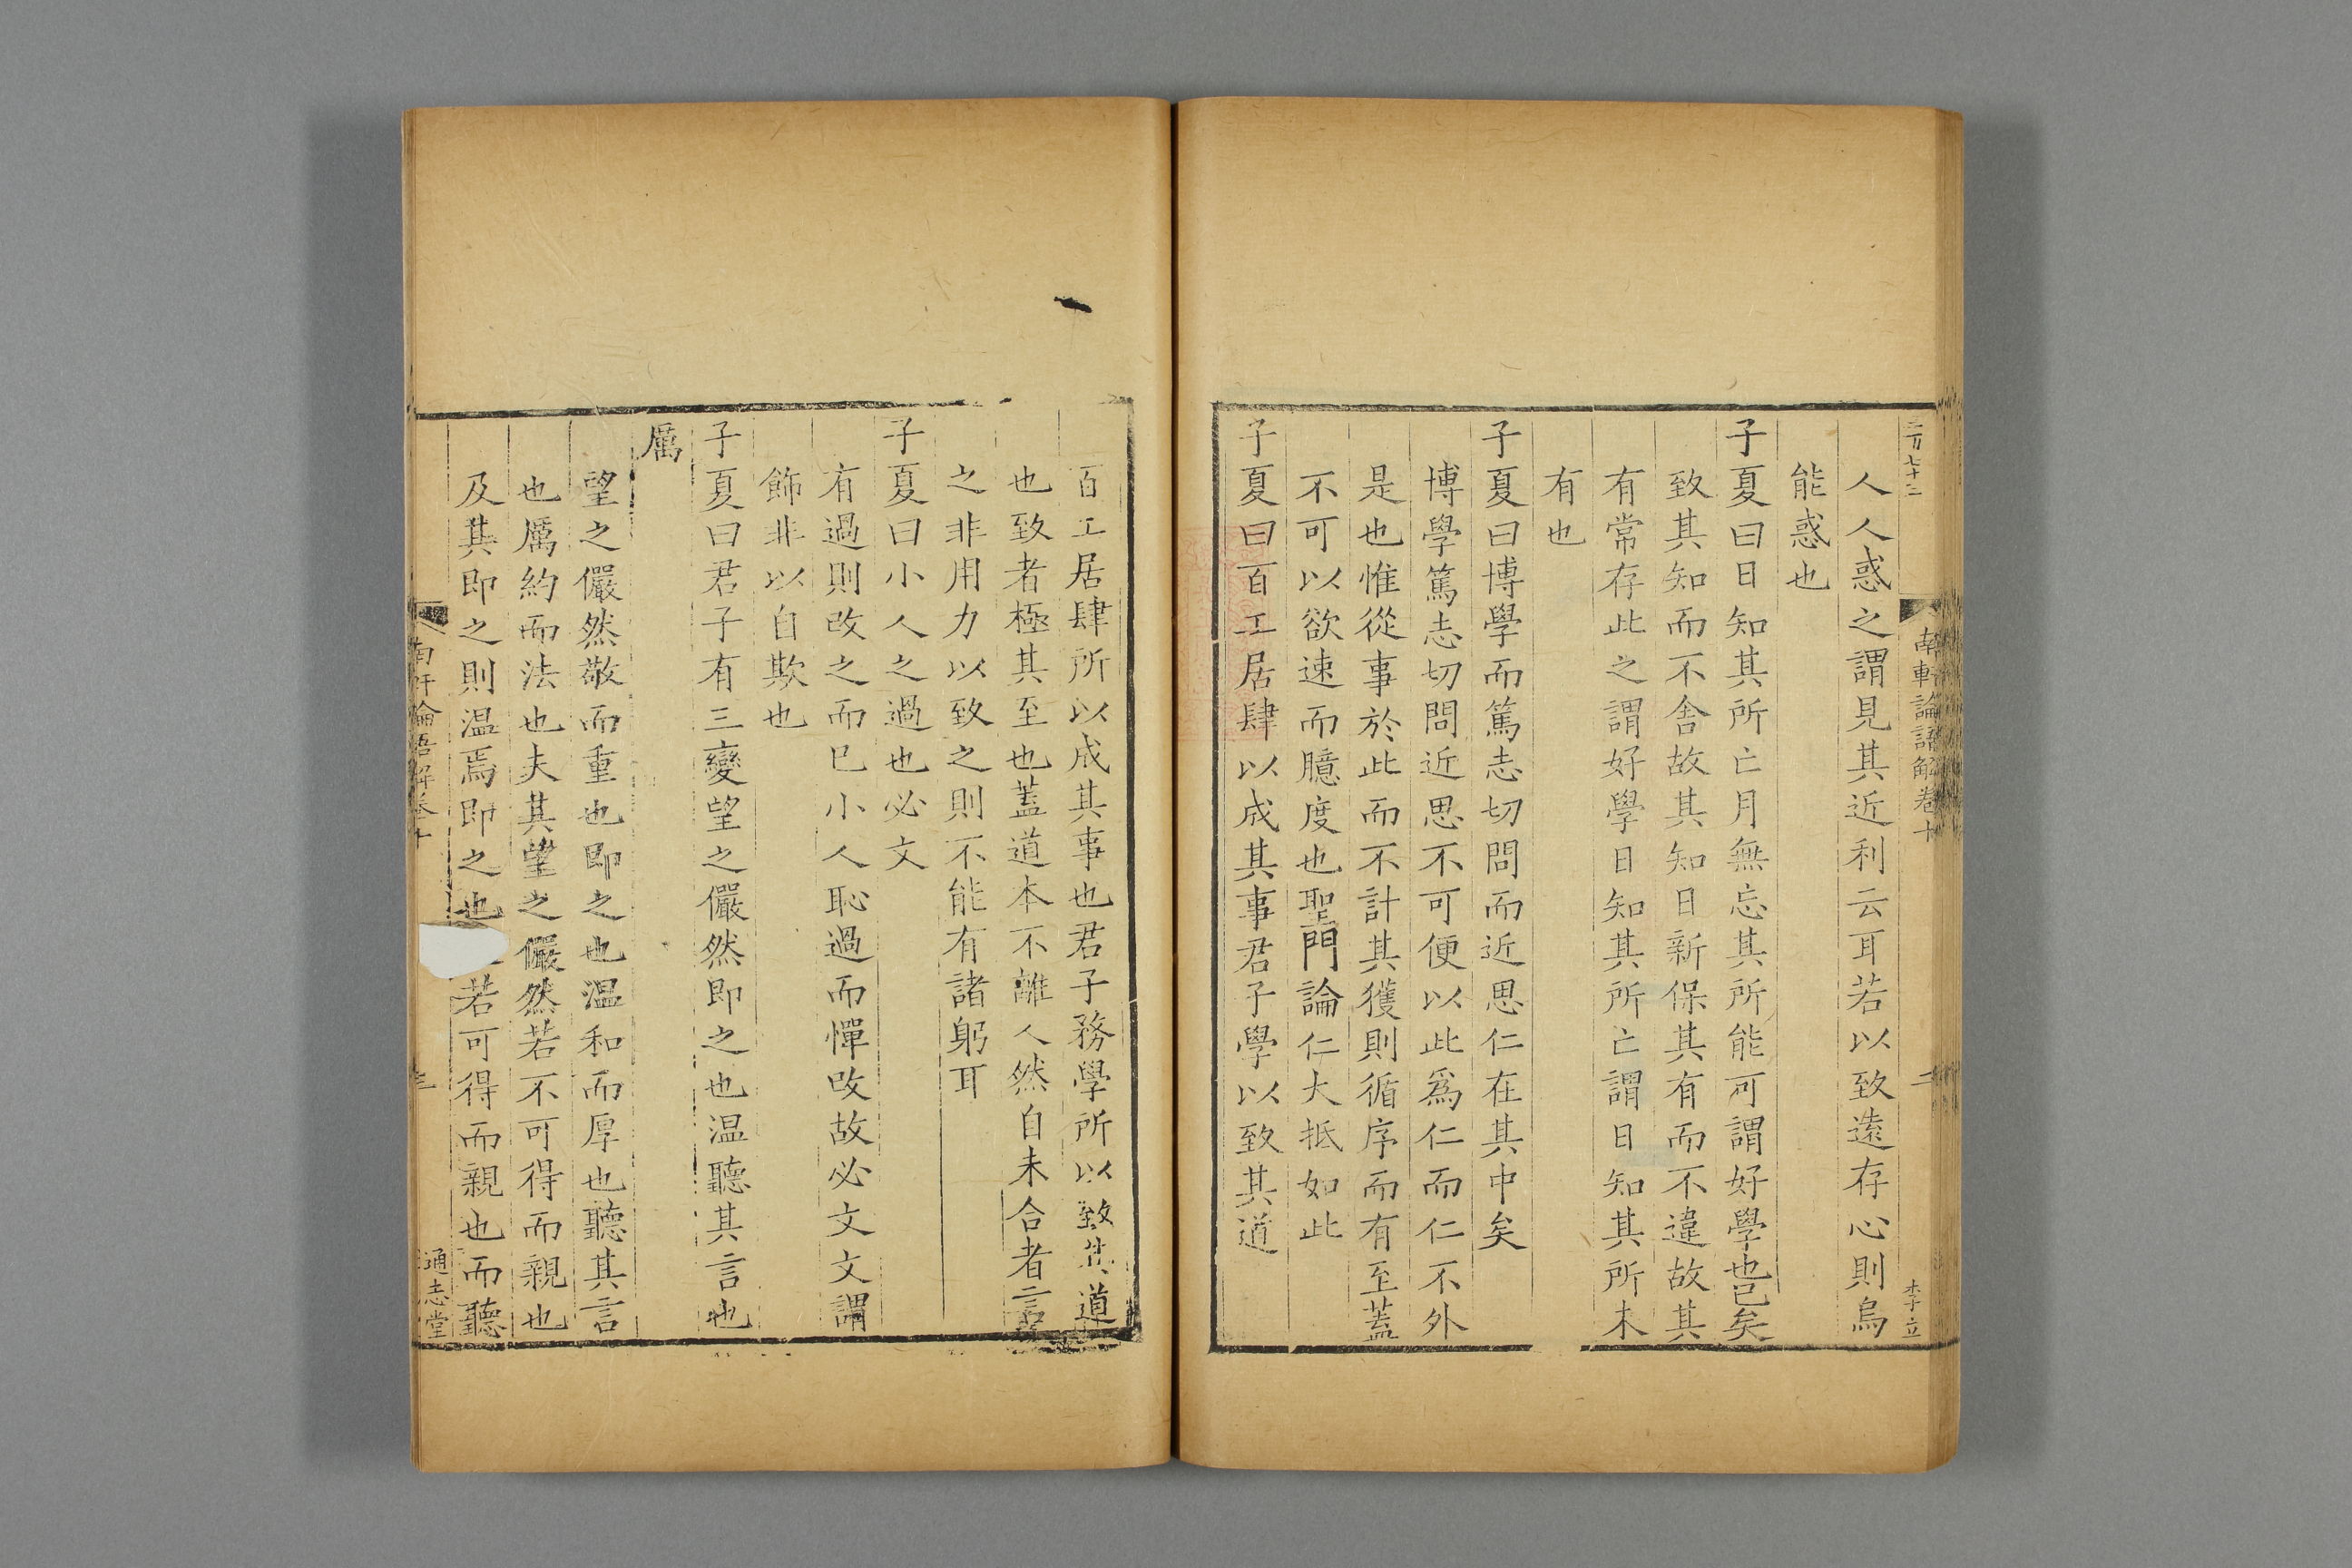 南軒論語解卷十
二
李立
人人惑之謂見其近利云耳若以致遠存心則烏
能惑也
子夏曰日知其所亡月無忘其所能可謂好學也已矣
致其知而不舍故其知日新保其有而不違故其
有常存此之謂好學日知其所亡謂日知其所未
有也
子夏曰博學而篤志切問而近思仁在其中矣
博學篤志切問近思不可便以此爲仁而仁不外
是也惟從事於此而不計其獲則循序而有至蓋
不可以欲速而臆度也聖門論仁大抵如此
子夏曰百工居肆以成其事君子學以致其道
百工居肆所以成其事也君子務學所以致其道
也致者極其至也蓋道本不離人然自未合者言
之非用力以致之則不能有諸躬耳
子夏曰小人之過也必文
有過則改之而已小人恥過而憚改故必文文謂
飾非以自欺也
子夏曰君子有三變望之儼然即之也温聽其言也
厲
望之儼然敬而重也即之也温和而厚也聽其言
也厲約而法也夫其望之儼然若不可得而親也
及其即之則温焉即之也若可得而親也而聽
南軒論語解卷十
三
通志堂